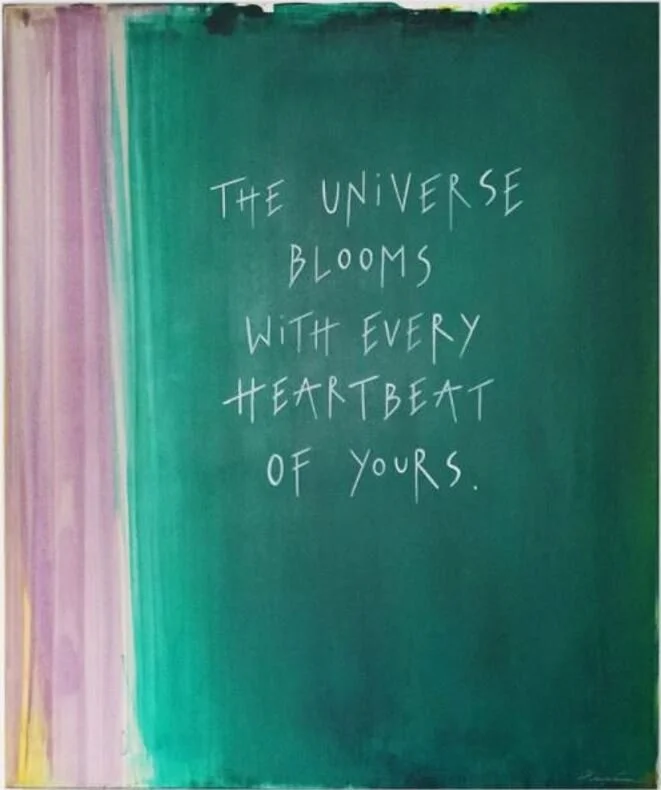 THE UNiVERSE
BLOOMS
WiTH EVERY
HEARTBEAT
OF YOURS.